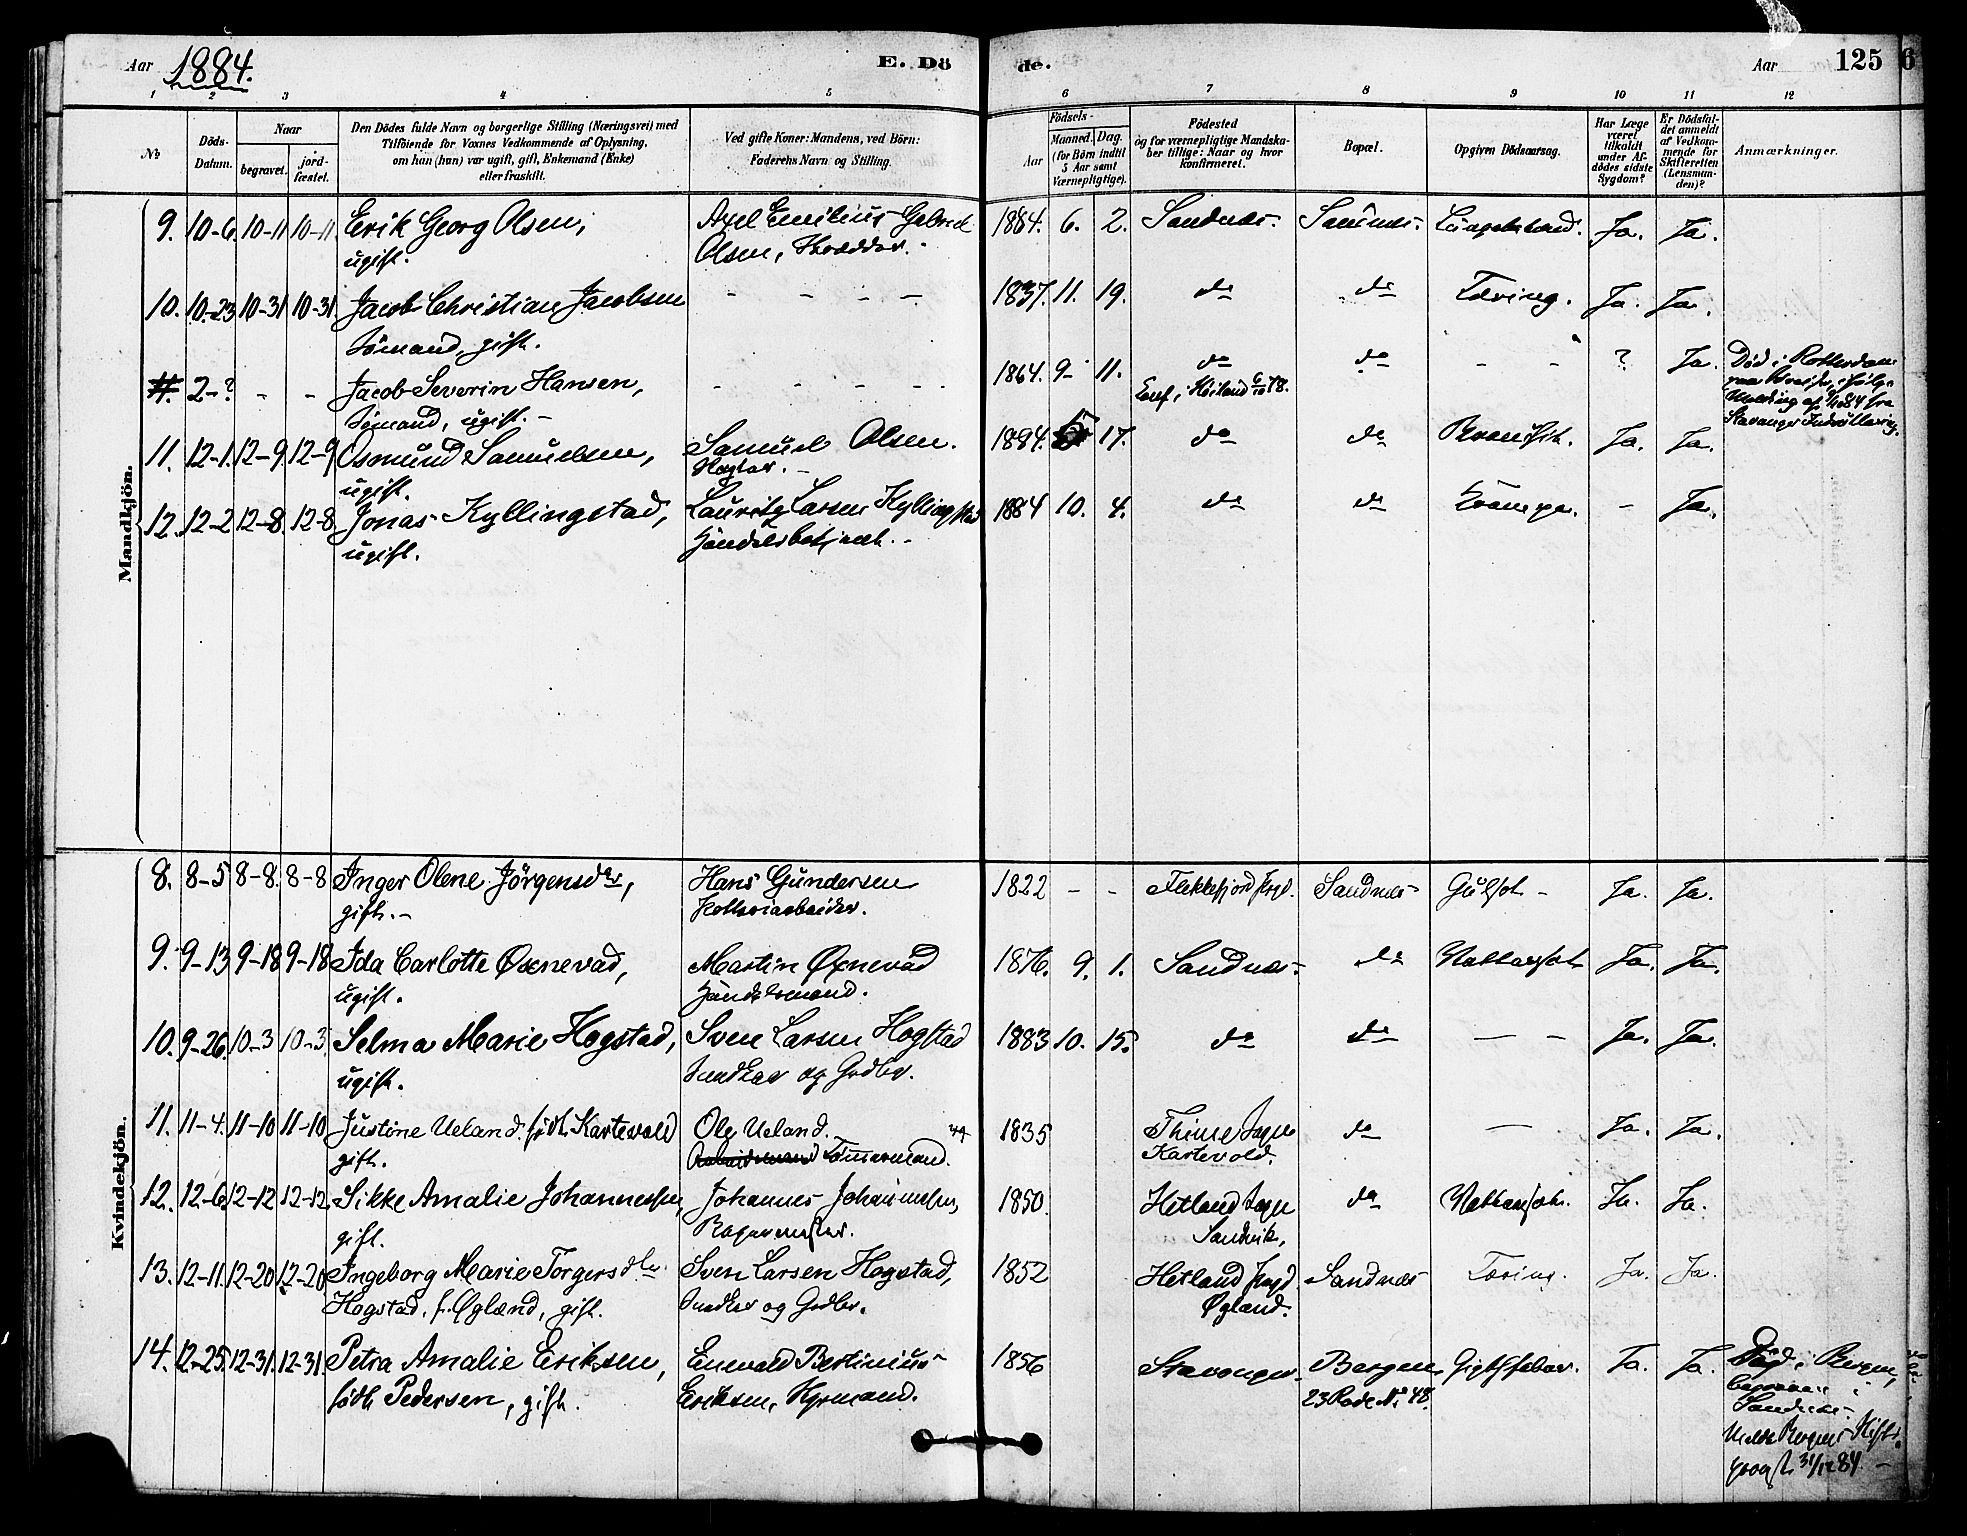 Aar 1884. E. Dö de. Aar 125 6
1 2 3 4 5 6 7 8 9 10 11 12
No
Döds-Datum.
Naar
begravet.
jord-fæstet.
Den Dödes fulde Navn og borgerlige Stilling (Næringsvei) med
Tilföiende for Voxnes Vedkommende af Oplysning,
om han (hun) var ugift, gift, Enkemand (Enke)
eller fraskilt.
Ved gifte Koner: Mandens, ved Börn:
Faderens Navn og Stilling.
Födsels-
Aar
Maaned. Dag.
(for Börn indtil
5 Aar samt
Værnepligtige).
Födested
og for værnepligtige Mandska-
ber tillige: Naar og hvor
konfirmeret.
Bopæl.
Opgiven Dödsaarsag.
Har Læge
været
tilkaldt
under Af-
dödes sidste
Sygdom?
Er Dödsfal-
det anmeldt
af Vedkom-
mende for
Skifteretten
(Lensman-
den)?
Anmærkninger.
Mandkjön.
9. 10-6. 10-11 10-11. Erik Georg Olsen, Axel Emilius Gabriel 1884. 6. 2. Sandnes. Sandnes. Ja. Ja.
ugift. Olsen, Skrædder.
10. 10-23 10-31 10-31. Jacob Christian Jacobsen - - - - 1837. 11. 19. do do Tæring. Ja. Ja.
Sömand, gift.
#. 2-? - - Jacob Severin Hansen, - - - - 1864. 9- 11. do do - - ? Ja. Död i Rotterdam
Sömand, ugift. - Conf. i Höiland 6/10 78.
Stavanger
11. 12-1. 12-9. 12-9 Osmund Samuelsen, Samuel Olsen. 1884. 5 17. do do Ja. Ja.
ugift.
12. 12-2 12-8. 12-8. Jonas Kyllingstad, Lauritz Larsen Kyllingstad 1884 10. 4. do do Krampe. - Ja.
ugift. Handelsbetjent.
Kvindekjön.
8. 8-5 8-8. 8-8 Inger Olene Jörgensdtr, Hans Gundersen 1822 - - Flekkefjord Sandnes Gulsot - Ja. Ja.
gift. - Potteriarbeider.
9. 9-13 9-18 9-18 Ida Carlotte Øxnevad, Martin Øxnevad 1876. 9. 1. Sandnes. do Ja. Ja.
ugift. Handelsmand.
10. 9-26. 10-3 10-3. Selma Marie Hogstad, Sven Larsen Hogstad 1883 10. 15. do do - - Ja. Ja.
ugift. Snedker og Gårdbr.
11. 11-4. 11-10 11-10 Justine Ueland. födt Kartevold Ole Ueland. 1835 Thime Sogn do - Ja. Ja.
gift. Tömmermand. Kartevold.
12. 12-6. 12-12 12-12. Sikke Amalie Johannessen, Johannes Johannessen, 1850. Hetland Sogn do Ja. Ja.
gift. Bagermester. Sandvik,
13. 12-11. 12-20 12-20. Ingeborg Marie Torgersdtr Sven Larsen Hogstad, 1852 Hetland Sandnes Tæring. Ja. Ja.
Hogstad, f. Øgland, gift. Snedker og Gårdbr. Øgland.
14. 12-25. 12-31. 12-31. Petra Amalie Eriksen, Enevald Bertinius 1856 Stavanger. Bergen Gigtfeber. Ja. Ja. Död i Bergen,
födt Pedersen, gift. Eriksen, Styrmand. 23 Rode No 48.
begravet i
Sandnes.
31/12 84. -